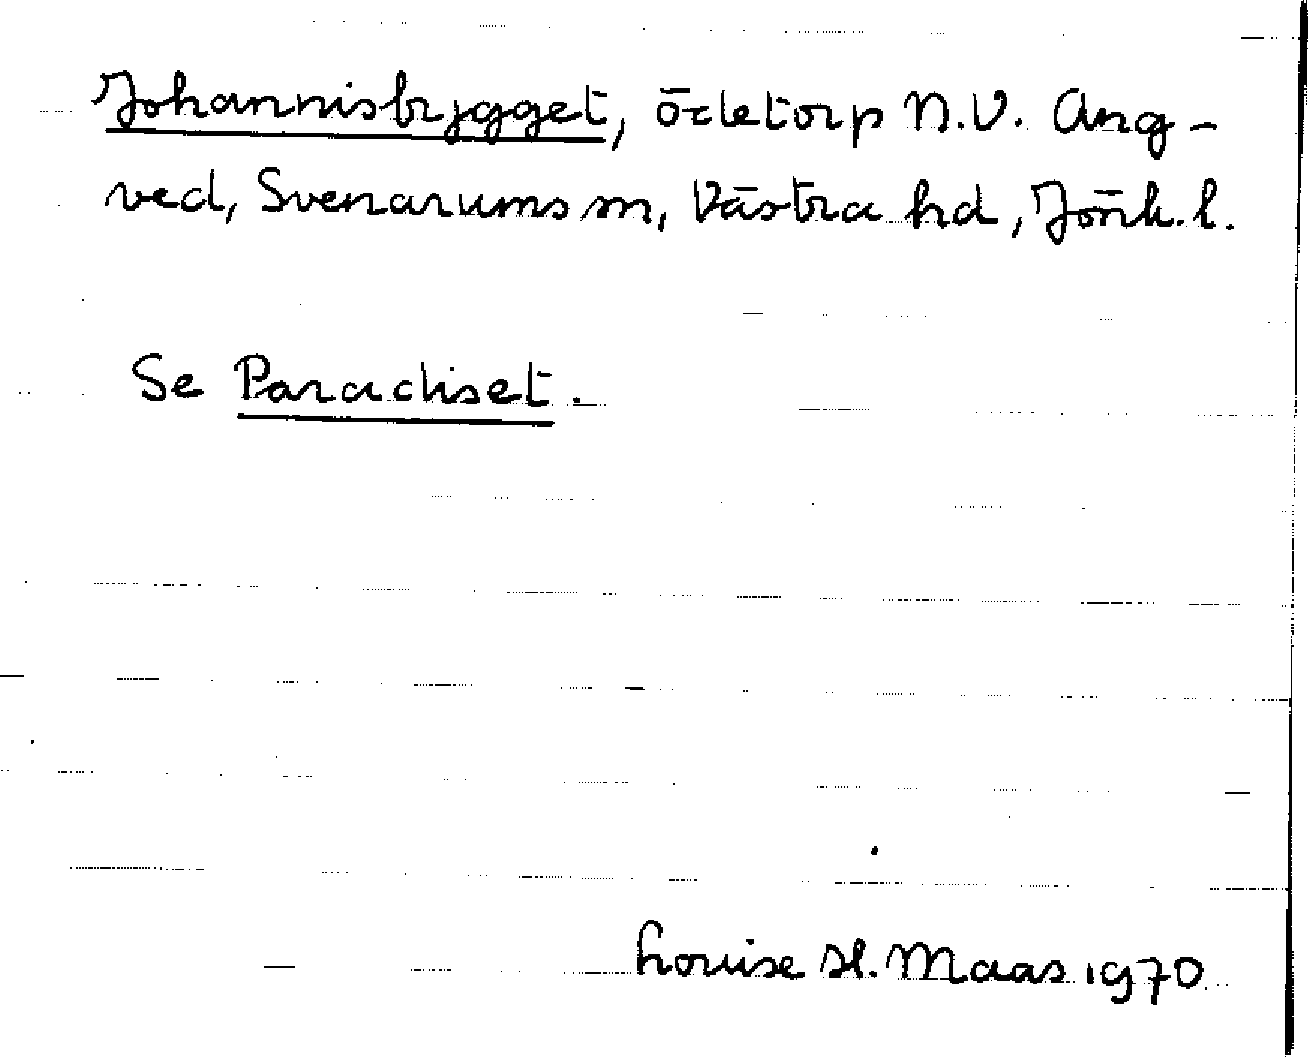 Johannisbrygget, ödetorp N.V. Ang-
ved, Svenarums sn, Västra hd, Jönk. l.
Se Paradiset.
Louise H. Maas 1970